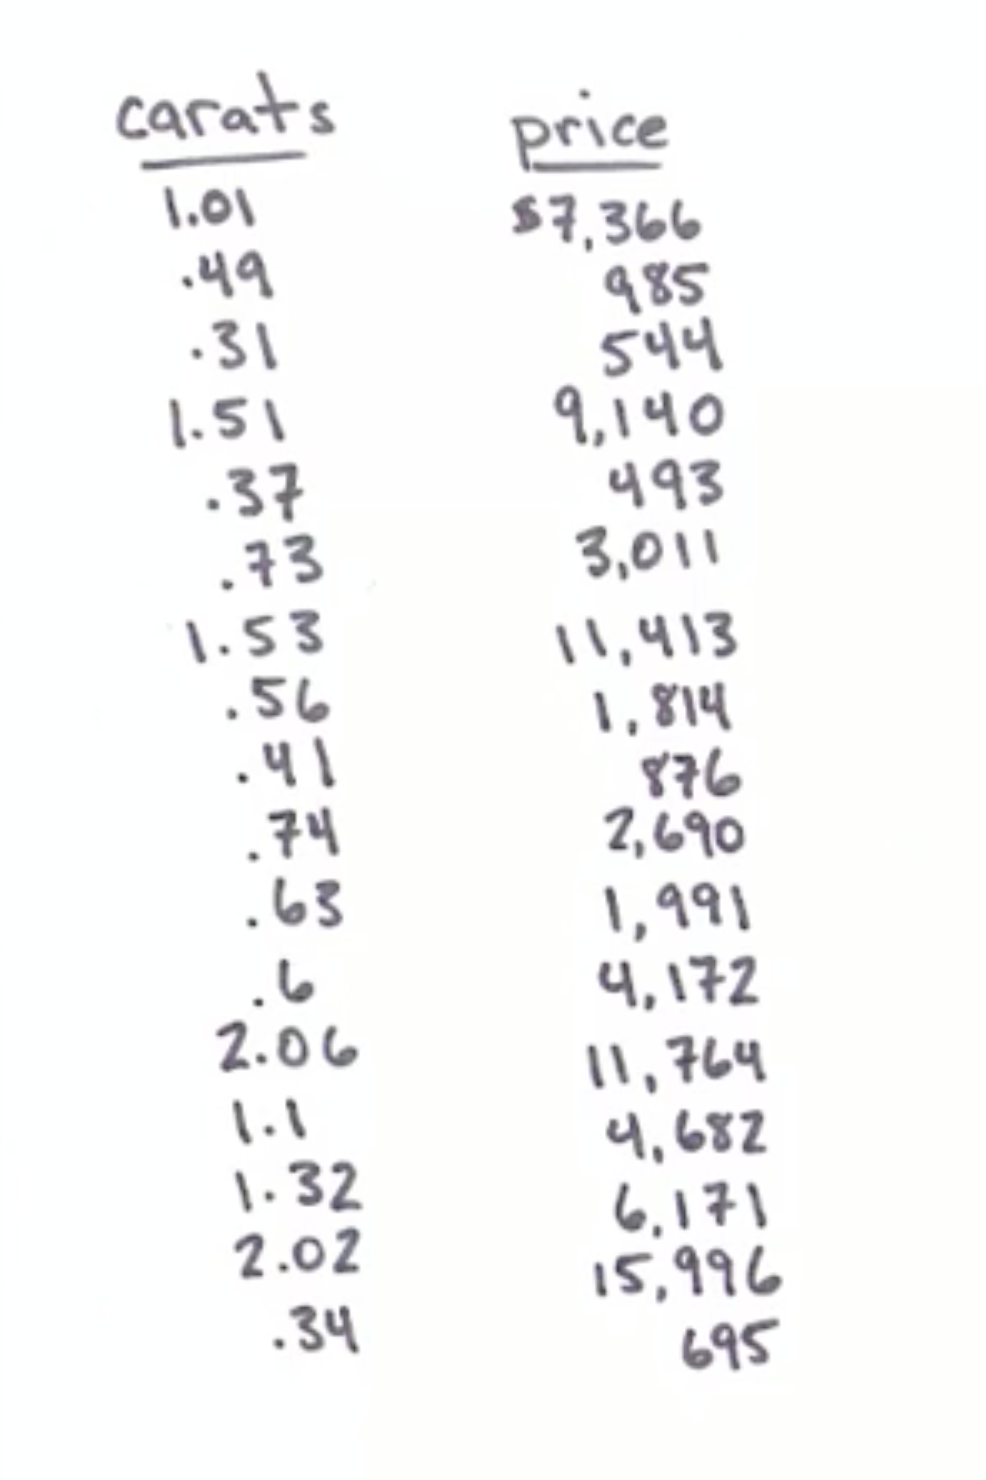 carats price
1.01 $7,366
.49 985
.31 544
1.51 9,140
.37 493
.73 3,011
1.53 11,413
.56 1,814
.41 876
.74 2,690
.63 1,991
.6 4,172
2.06 11,764
1.1 4,682
1.32 6,171
2.02 15,996
.34 695